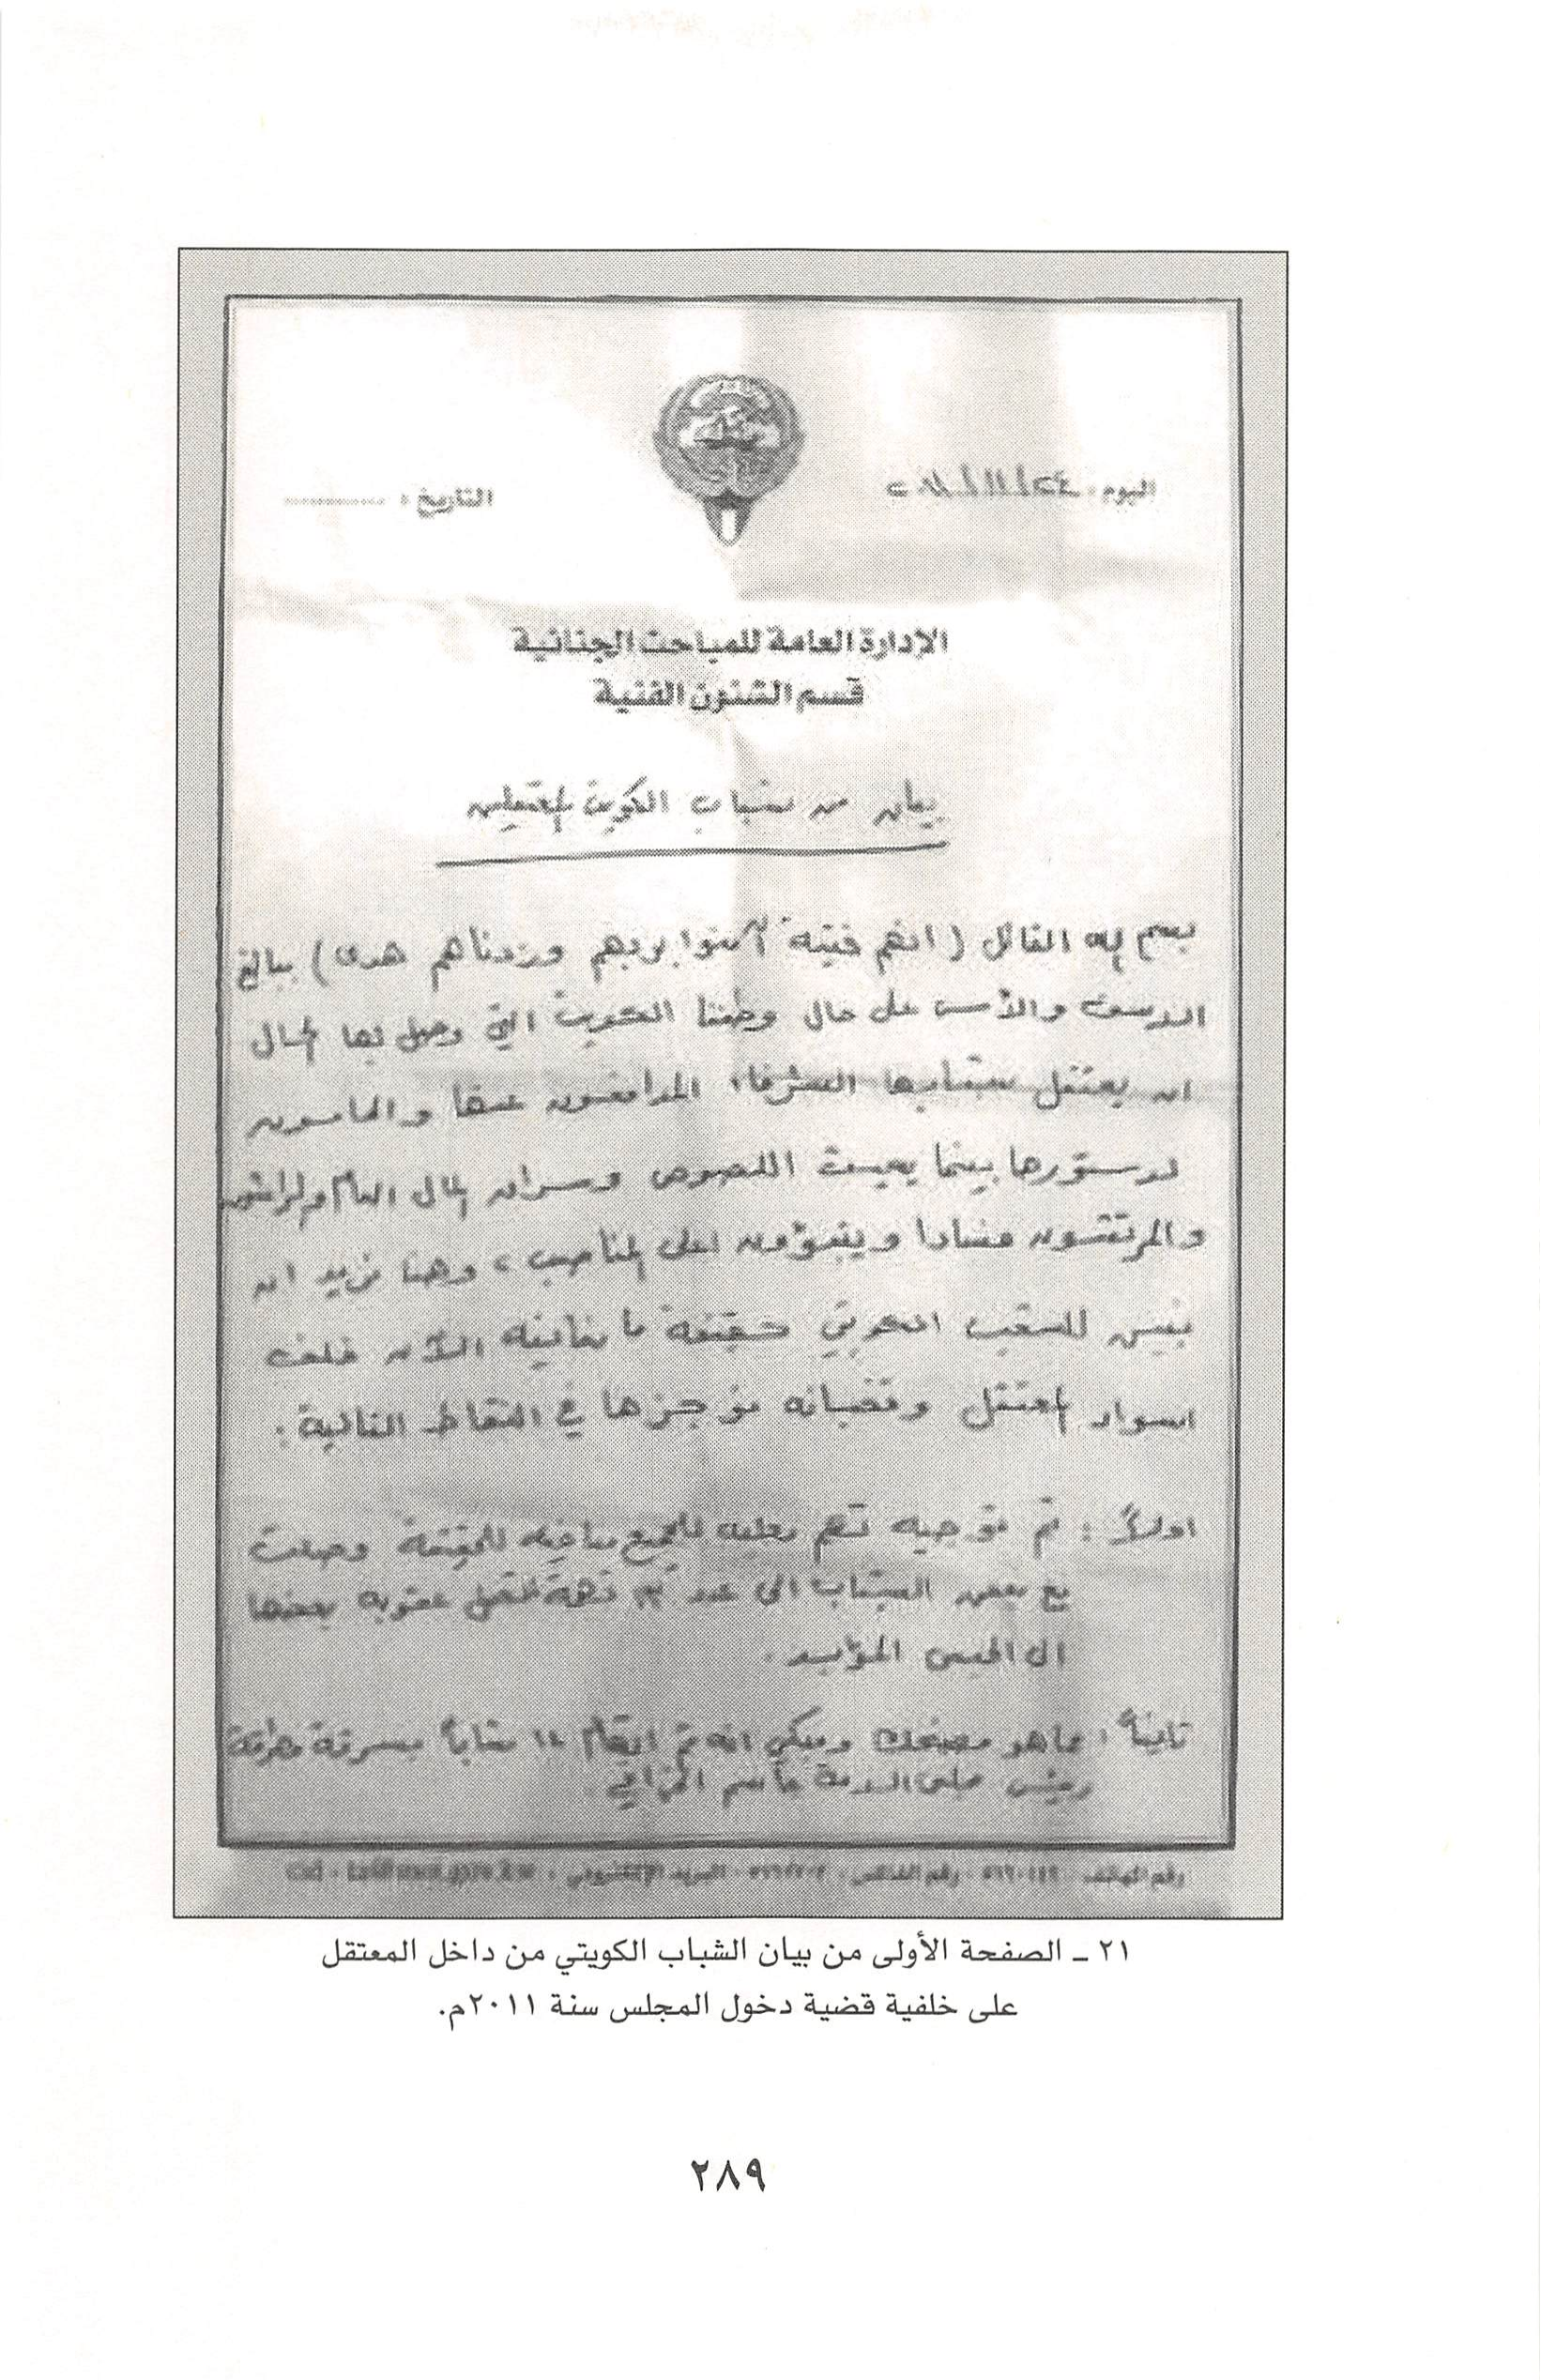 اليوم :
التاريخ : ............
الإدارة العامة للمباحث الجنائية
قسم الشئون الفنية
بيان من شباب الكويت المعتقلين
بسم الله القائل ( انهم فتية آمنوا بربهم وزدناهم هدى ) ببالغ
والأسى على حال وطننا الكويت التي وصل بها الحال
ان يعتقل شبابها الشرفاء المدافعون عنها والحامون
لدستورها بينما يعيث اللصوص وسراق المال العام والراشون
والمرتشون فسادا ويتبوؤون اعلى المناصب ، وهنا نريد ان
نبين للشعب الكويتي حقيقة ما نعانيه الآن خلف
اسوار المعتقل وقضبانه نوجزها في النقاط التالية :
اولاً : تم توجيه تهم للجميع للحقيقة وصلت
مع بعض الشباب الى عدد تهمة تصل عقوبة بعضها
الى الحبس المؤبد .
ثانياً : ما هو مضحك ومبكي انه تم اتهام شاباً بسرقة مطرقة
رئيس مجلس الامة جاسم الخرافي
رقم الهاتف : رقم الفاكس : البريد الإلكتروني :
٢١ ـ الصفحة الأولى من بيان الشباب الكويتي من داخل المعتقل
على خلفية قضية دخول المجلس سنة ٢٠١١م.
٢٨٩